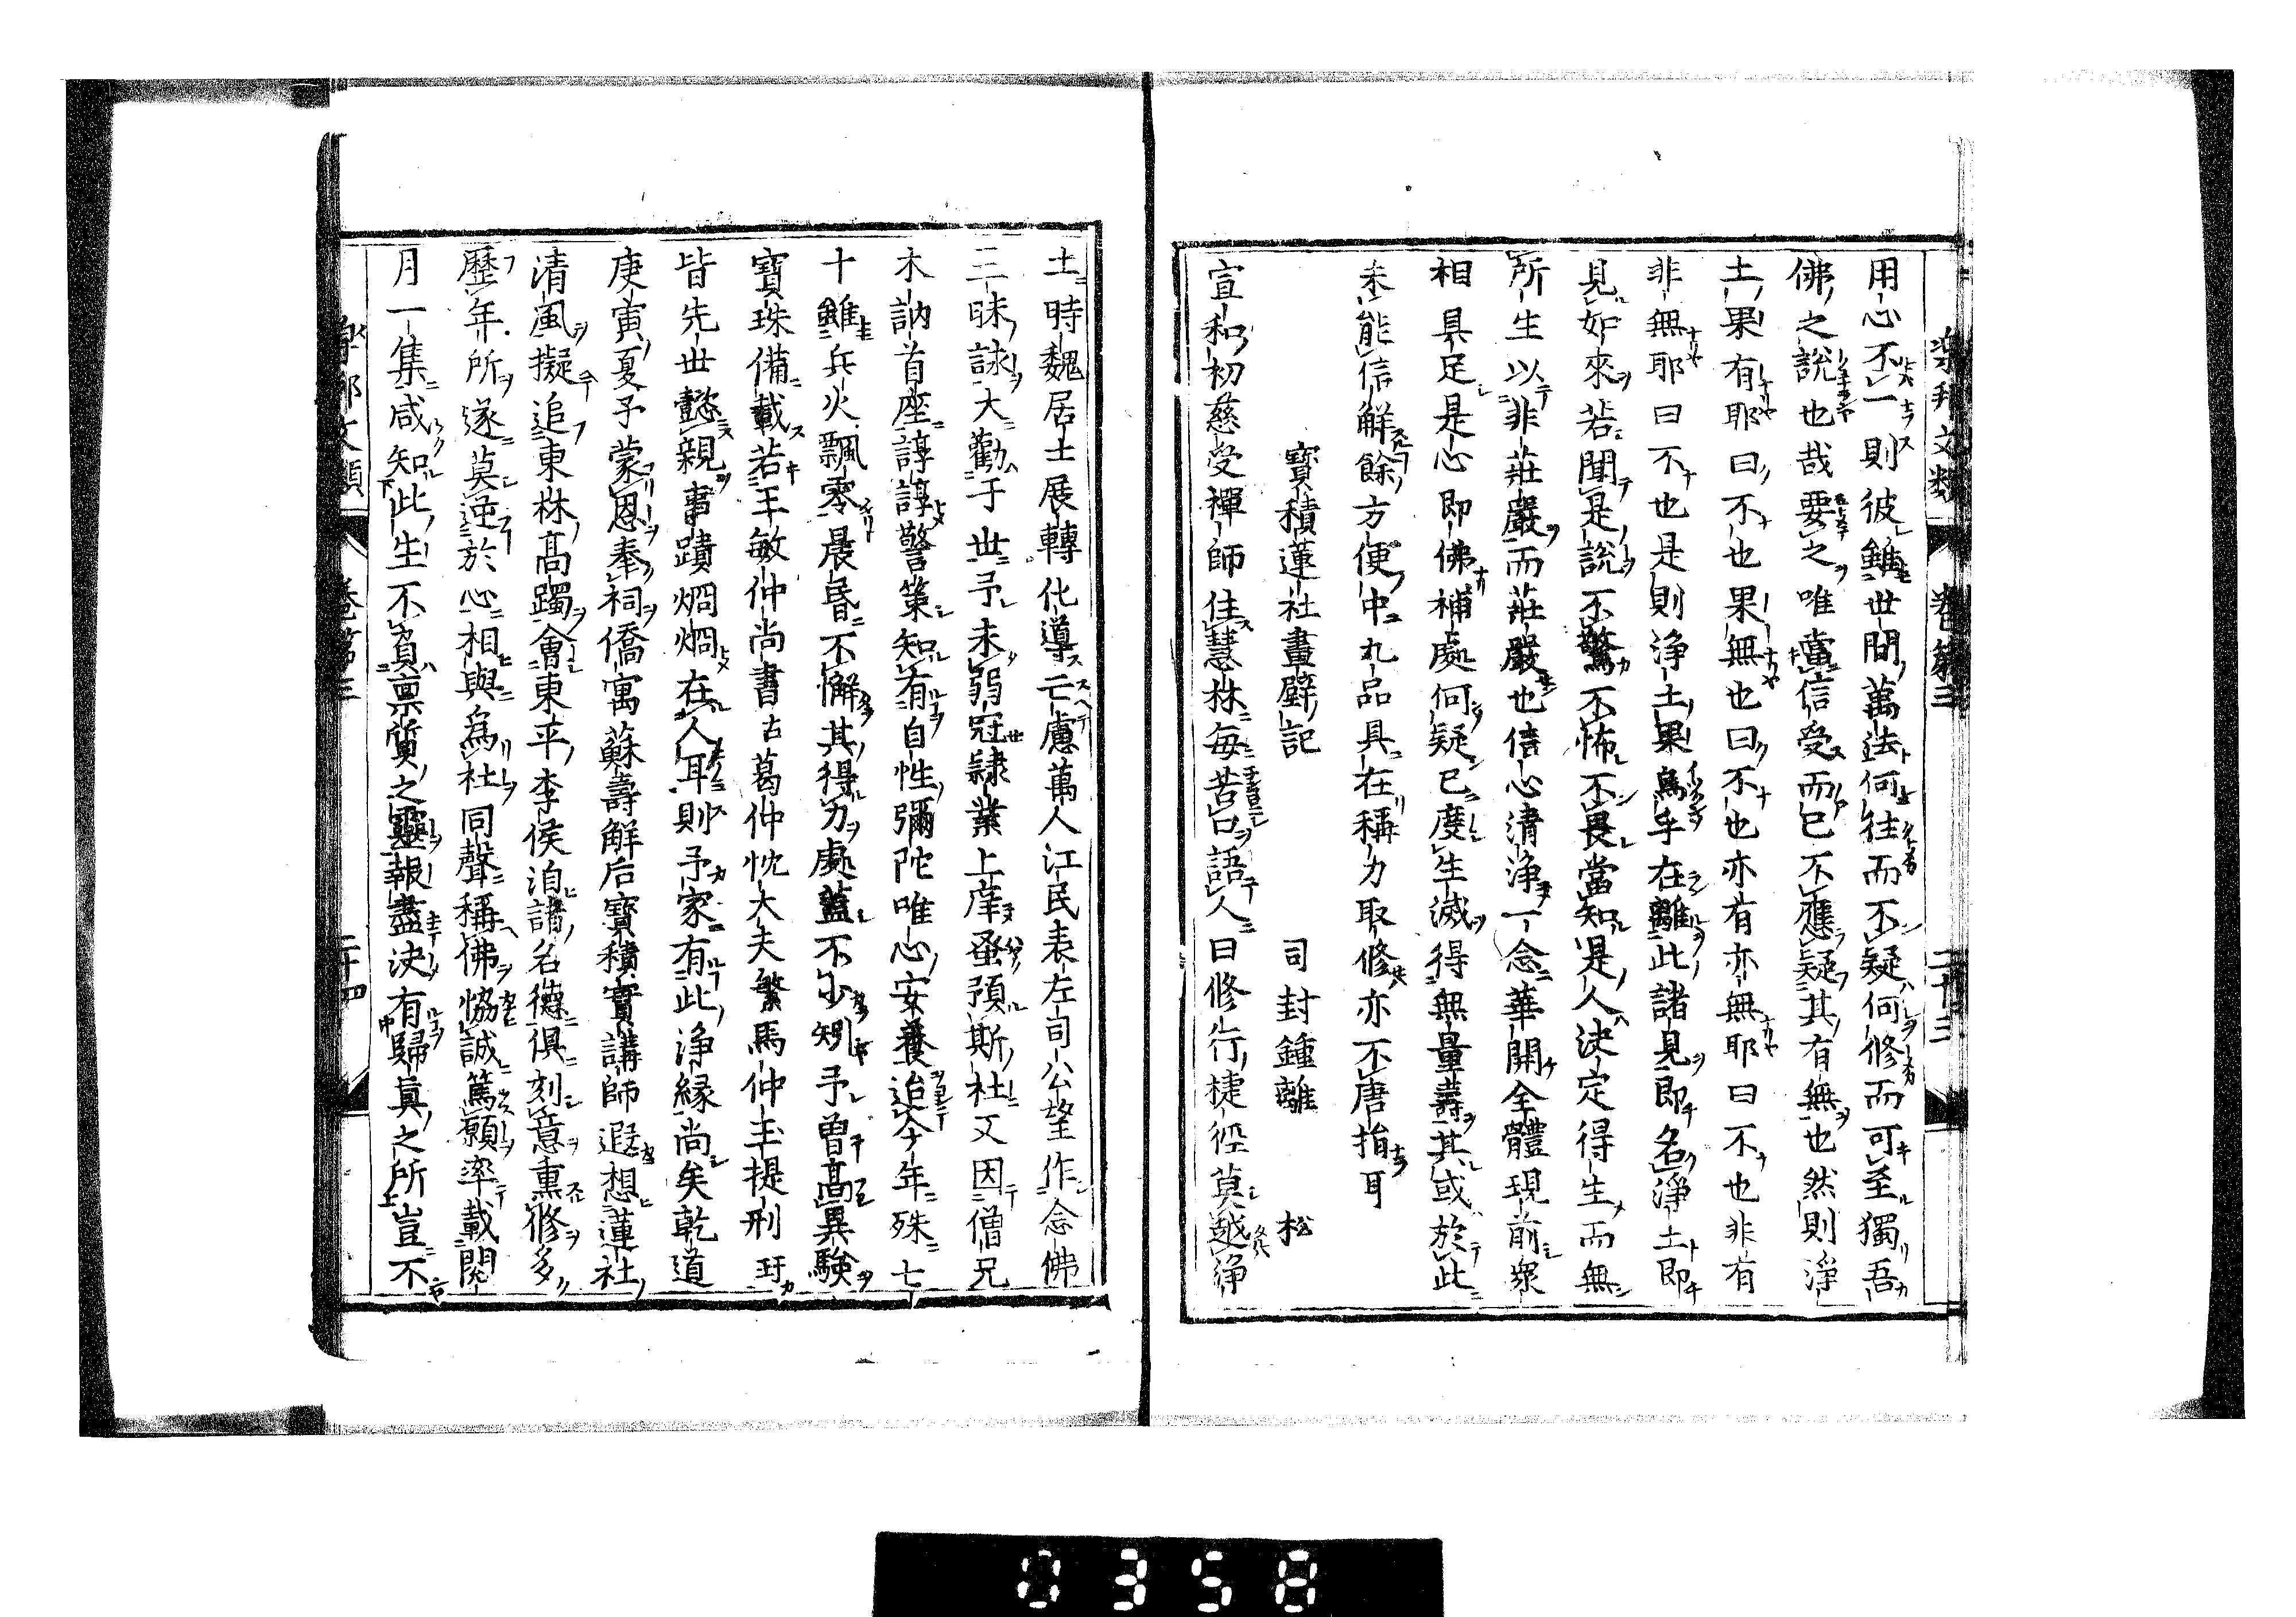 樂邦文類 卷第三 二十三
用心不一則彼雖世間萬法何往而不疑何修而可至獨吾
佛之說也哉要之唯當信受而已不應疑其有無也然則淨
土果有耶曰不也果無也曰不也亦有亦無耶曰不也非有
非無耶曰不也是則淨土果烏乎在離此諸見即名淨土即
見如來若聞是說不驚不怖不畏當知是人決定得生而無
所生以非莊嚴而莊嚴也信心清淨一念華開全體現前衆
相具足是心即佛補處何疑已度生滅得無量壽其或於此
未能信解餘方便中九品具在稱力取修亦不唐捐耳
寶積蓮社畫壁記
司封鍾離 松
宣和初慈受禪師住慧林每苦口語人曰修行捷徑莫越淨
土時魏居士展轉化導亡慮萬人江民表左司公望作念佛
三昧詠大勸于世予未弱冠隷業上庠蚤預斯社又因僧兄
木訥首座諄諄警策知有自性彌陀唯心安養迨今年殊七
十雖兵火飄零晨昏不懈其得力處蓋不少矧予曾高異驗
寶珠備載若王敏仲尚書古葛仲忱大夫繁馬仲玉提刑玗
皆先世懿親事蹟烱烱在人耳則予家有此淨緣尚矣乾道
庚寅夏予蒙恩奉祠僑寓蘇壽解后寶積實講師遐想蓮社
清風擬追東林高躅會東平李侯洎諸名德俱刻意熏修多
歷年所遂莫逆於心相與為社同聲稱佛恊誠篤願率載閱
月一集咸知此生不負稟質之靈報盡決有歸眞之所豈不
樂邦文類 卷第三 二十四
0358